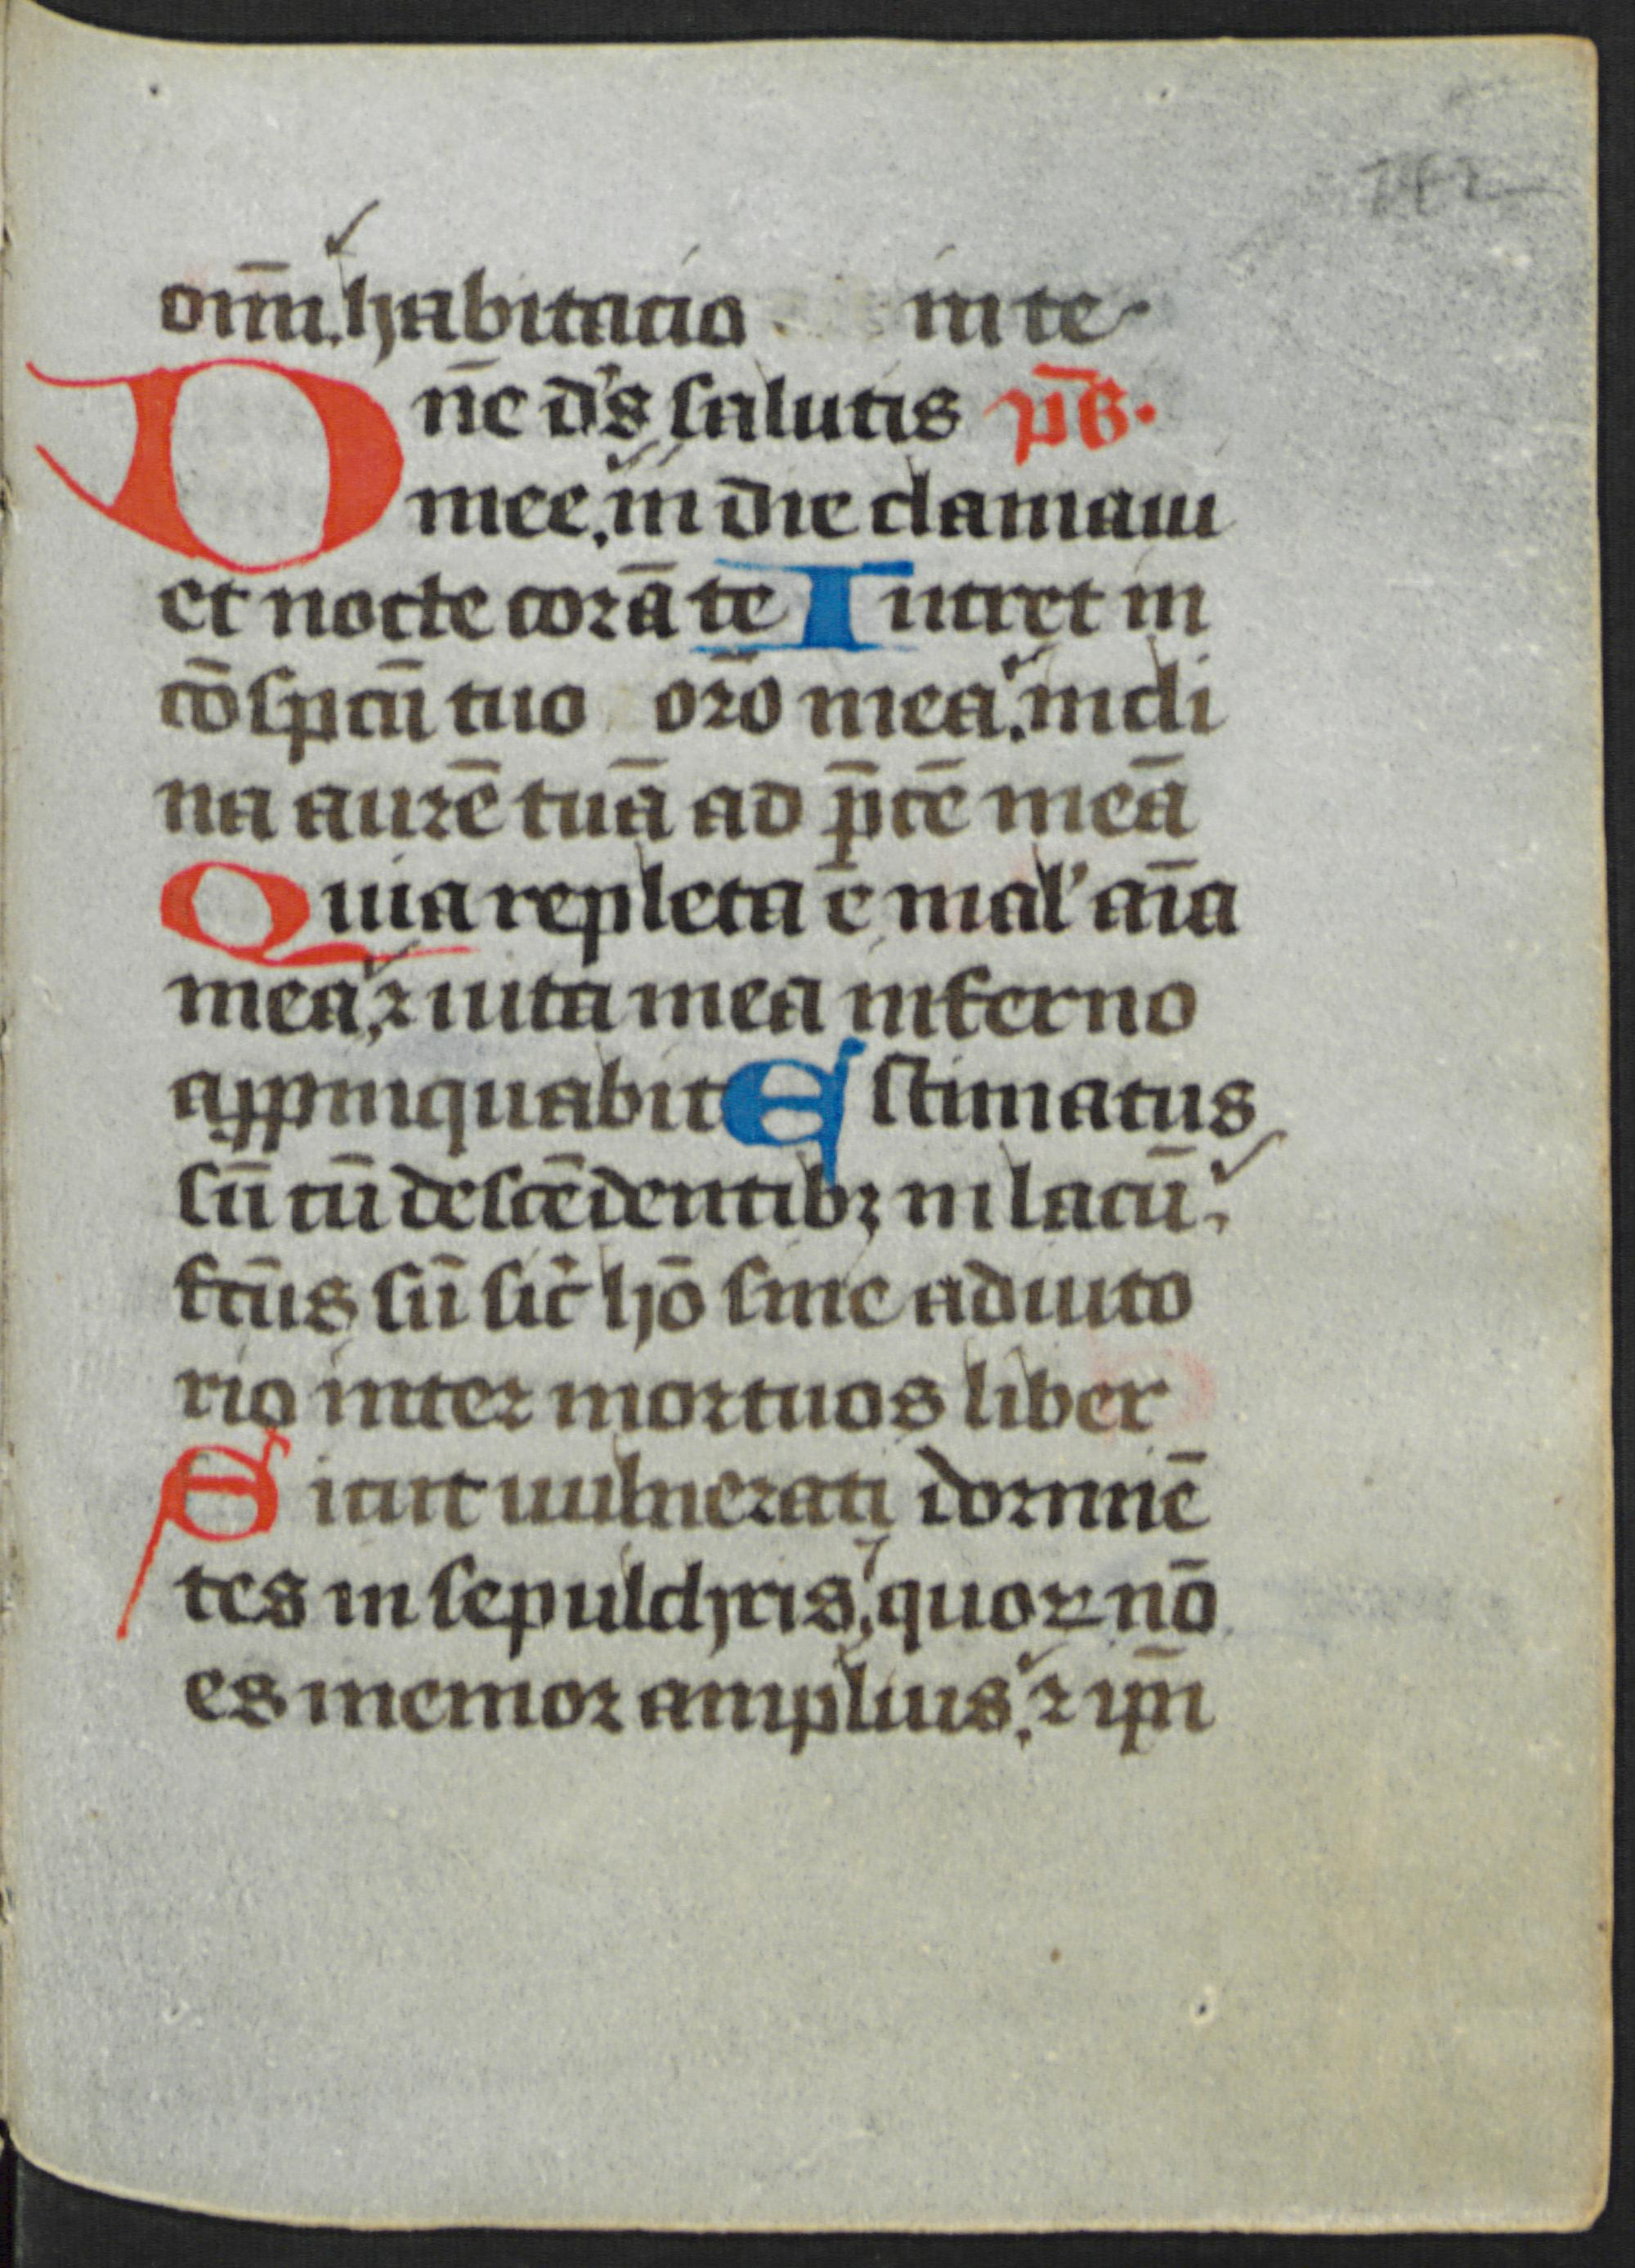 om̄i. habitacio in te
Dn̄e d's salutis p̄s.
mee. in die clamaui
et nocte corā te Intret in
cōspcū tuo or̄o mea. incli
na aurē tuā ad p̄cē meā
Quia repleta ē mal' aīa
mea. ⁊ uita mea inferno
appinquabit Estimatus
sū cū descēdentibꝫ in lacū.
fctūs sū sic̄ hō sine adiuto
rio inter mortuos liber
Sicut uulnerati dormiē
tes in sepulchris. quoꝝ nō
es memor amplius. ⁊ ip̄i